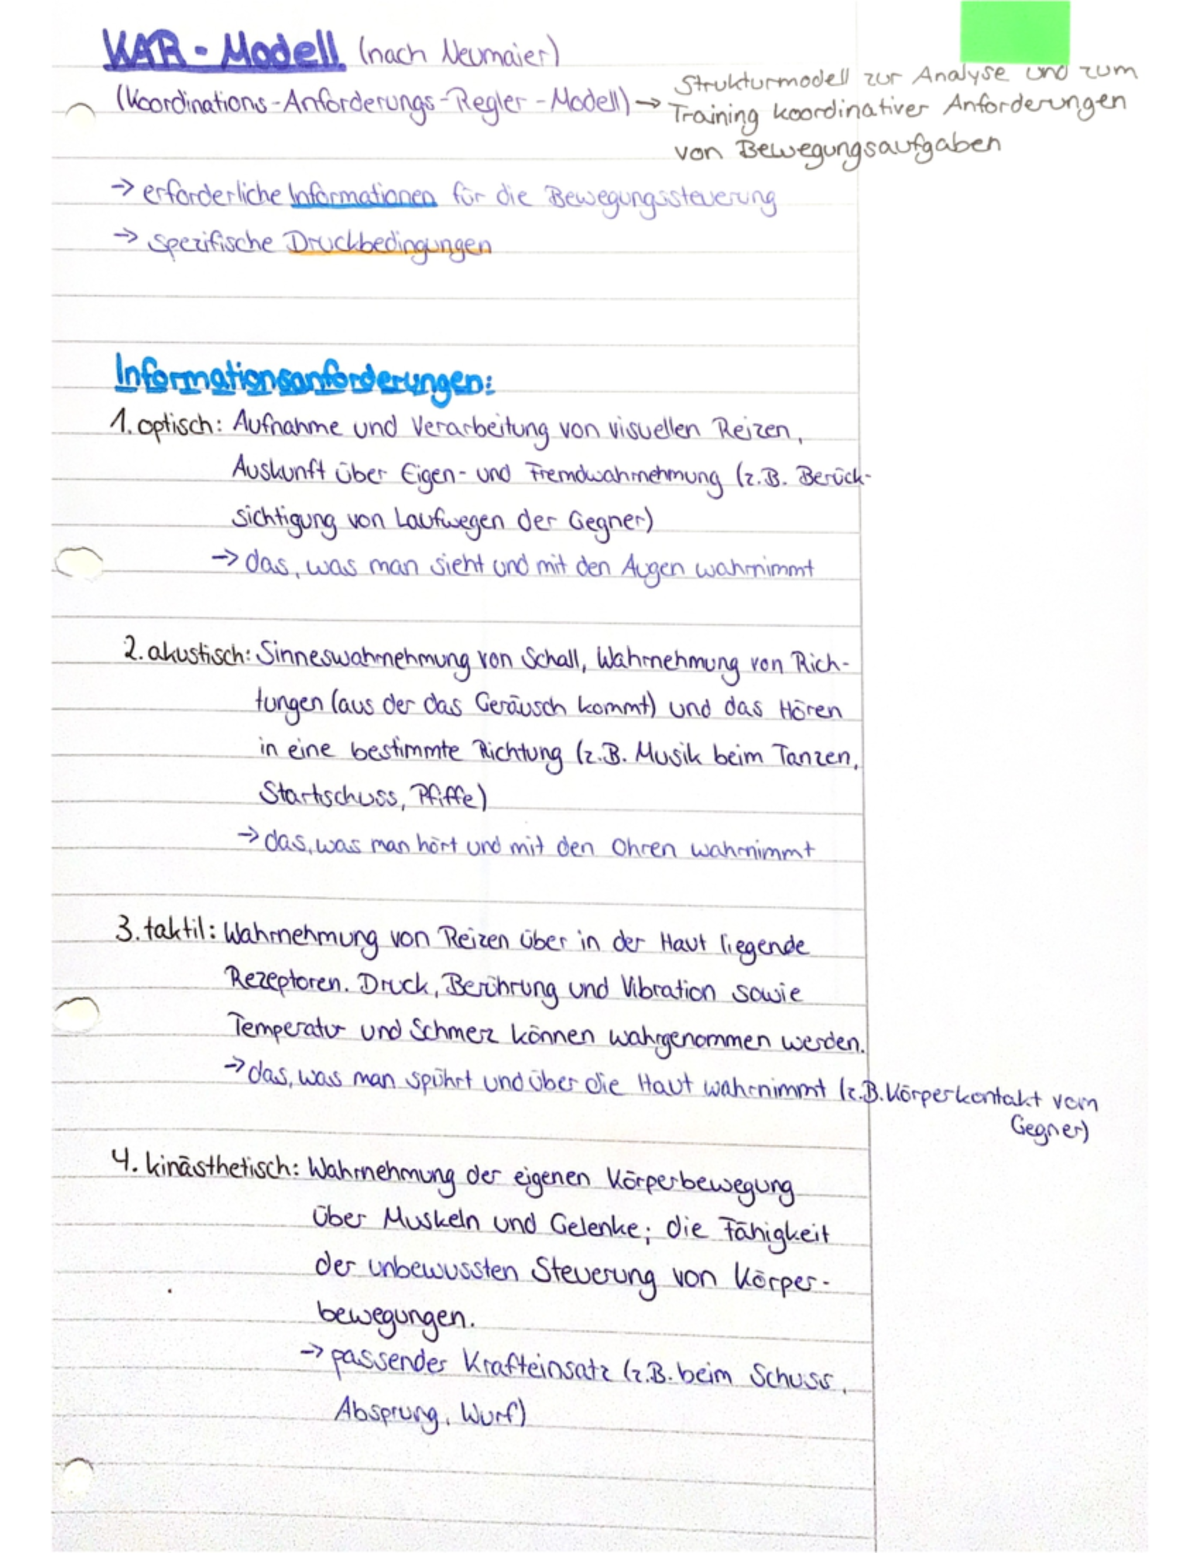 KAR - Modell (nach Neumaier)
(Koordinations-Anforderungs-Regler-Modell) → Strukturmodell zur Analyse und zum
Training koordinativer Anforderungen
von Bewegungsaufgaben
→ erforderliche Informationen für die Bewegungssteuerung
→ spezifische Druckbedingungen
Informationsanforderungen:
1. optisch: Aufnahme und Verarbeitung von visuellen Reizen,
Auskunft über Eigen- und Fremdwahrnehmung (z.B. Berück-
sichtigung von Laufwegen der Gegner)
→ das, was man sieht und mit den Augen wahrnimmt
2. akustisch: Sinneswahrnehmung von Schall, Wahrnehmung von Rich-
tungen (aus der das Geräusch kommt) und das Hören
in eine bestimmte Richtung (z.B. Musik beim Tanzen,
Startschuss, Pfiffe)
→ das, was man hört und mit den Ohren wahrnimmt
3. taktil: Wahrnehmung von Reizen über in der Haut liegende
Rezeptoren. Druck, Berührung und Vibration sowie
Temperatur und Schmerz können wahrgenommen werden.
→ das, was man spührt und über die Haut wahrnimmt (z.B. Körperkontakt vom
Gegner)
4. kinästhetisch: Wahrnehmung der eigenen Körperbewegung
über Muskeln und Gelenke; die Fähigkeit
der unbewussten Steuerung von Körper-
bewegungen.
→ passender Krafteinsatz (z.B. beim Schuss,
Absprung, Wurf)